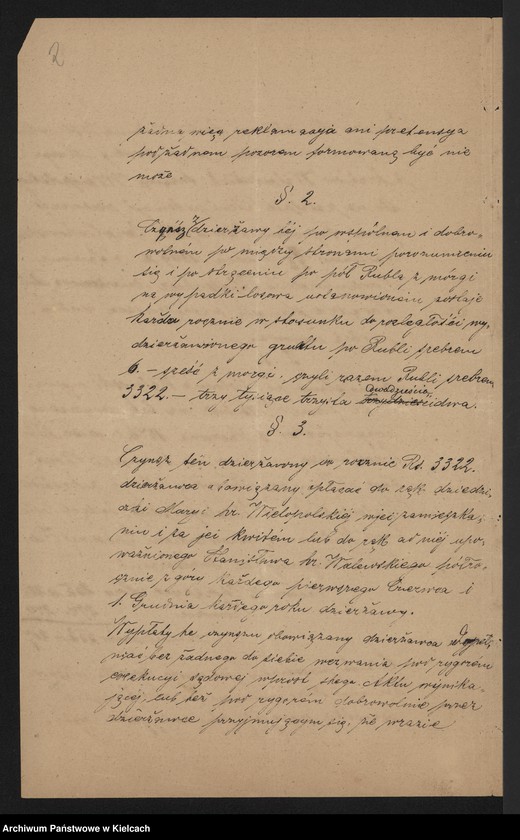 2
żadną więc reklamacyja ani pretensya
pod żadnem pozorem formowaną być nie
może
§. 2.
Czynsz z dzierżawy tej po wspólnem i dobro-
wolném po między stronami porozumieniu
się i po strąceniu po pół Rubla z morgi
na wypadki losowe ustanowionem zostaje
każdo rocznie w stosunku do rozległości wy-
dzierżawionego gruntu po Rubli srebrem
6. – sześć z morgi. czyli razem Rubli srebrem
dwadzieścia
3322. – trzy tysiące trzysta dwa.
§. 3.
Czynsz ten dzierżawny co rocznie Rs. 3322.
dzierżawca obowiązany opłacać do rąk dziedzi-
czki Maryi hr. Wielopolskiéj w jéj zamieszka-
niu i za jéj kwitem lub do rąk od niéj upo-
ważnionego Stanisława hr. Walewskiego półro-
cznie z góry każdego pierwszego Czerwca i
1. Grudnia każdego roku dzierżawy.
Wypłaty te czynszu obowiązany dzierżawca
bez żadnego do siebie wezwania pod rygorem
exekucyi sądowej wprost z tego Aktu wynika-
jącéj, lub téż pod rygorem dobrowolnie przez
dzierżawce przyjmującym się, że w razie
Archiwum Państwowe w Kielcach